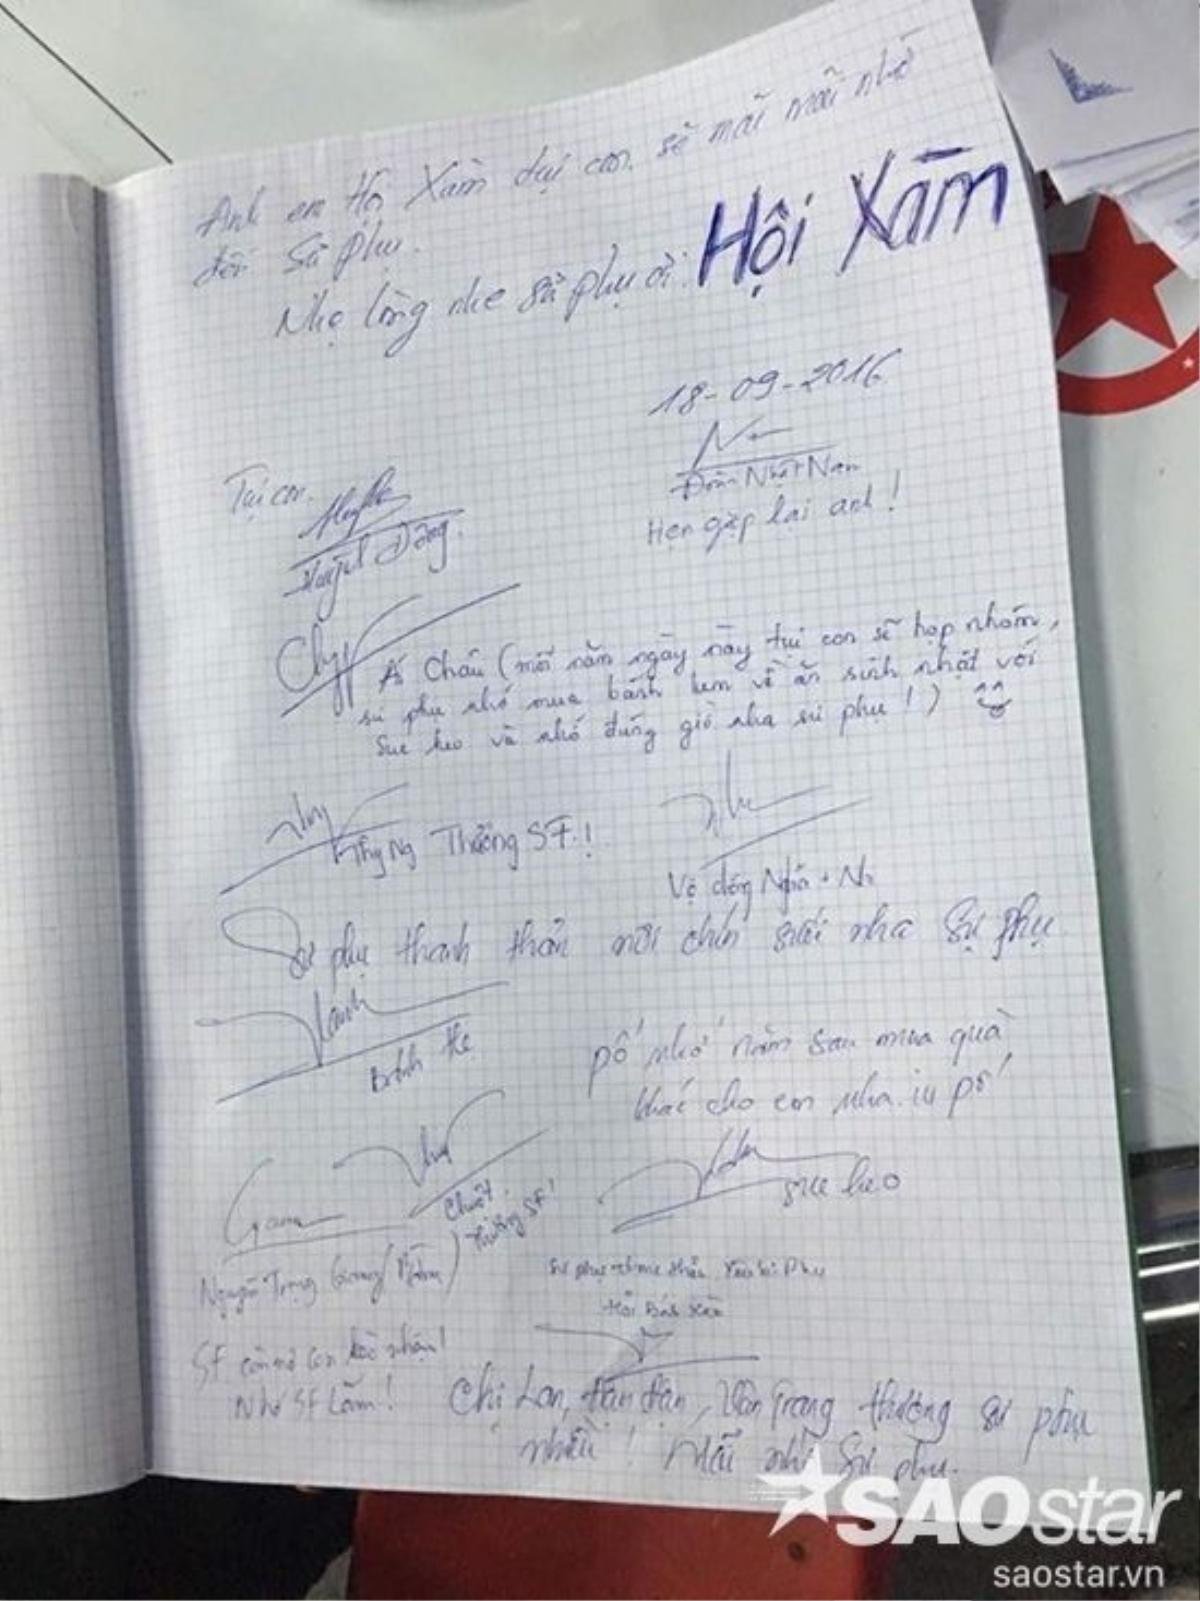 Anh em Hội Xàm tụi con sẽ mãi mãi nhớ
đến Sư Phụ.
Nhẹ lòng nhe sư phụ ơi.
Hội Xàm
18-09-2016
Đoàn Nhật Nam
Hẹn gặp lại anh!
Tụi con.
Huỳnh Đông.
Á Châu (mỗi năm ngày này tụi con sẽ họp nhóm,
sư phụ nhớ mua bánh kem về ăn sinh nhật với
Sue heo và nhớ đúng giờ nha sư phụ!)
Thy Ng Thương SF.!
Sư phụ thanh thản nơi chín suối nha sư phụ.
Bánh
pố nhớ năm sau mua quà
khác cho con nha. iu pố
sue heo
Chuột.
Thương SF!
Nguyễn Trọng
SF còn nợ con
Nhớ SF Lắm!
Chị Lan, Đan Đan, Vân Trang thương sư phụ
nhiều! Mãi nhớ Sư phụ.
SAOstar
saostar.vn